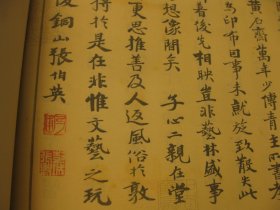 黄石齋萬年少傅青主㱕書
為印布因事未就旋致散失此
春後先相映豈非藝林盛事
想像聞矣　　予心二親在堂
更思推善及人返風俗於敦
将於是在非惟文藝之玩
後銅山張伯英